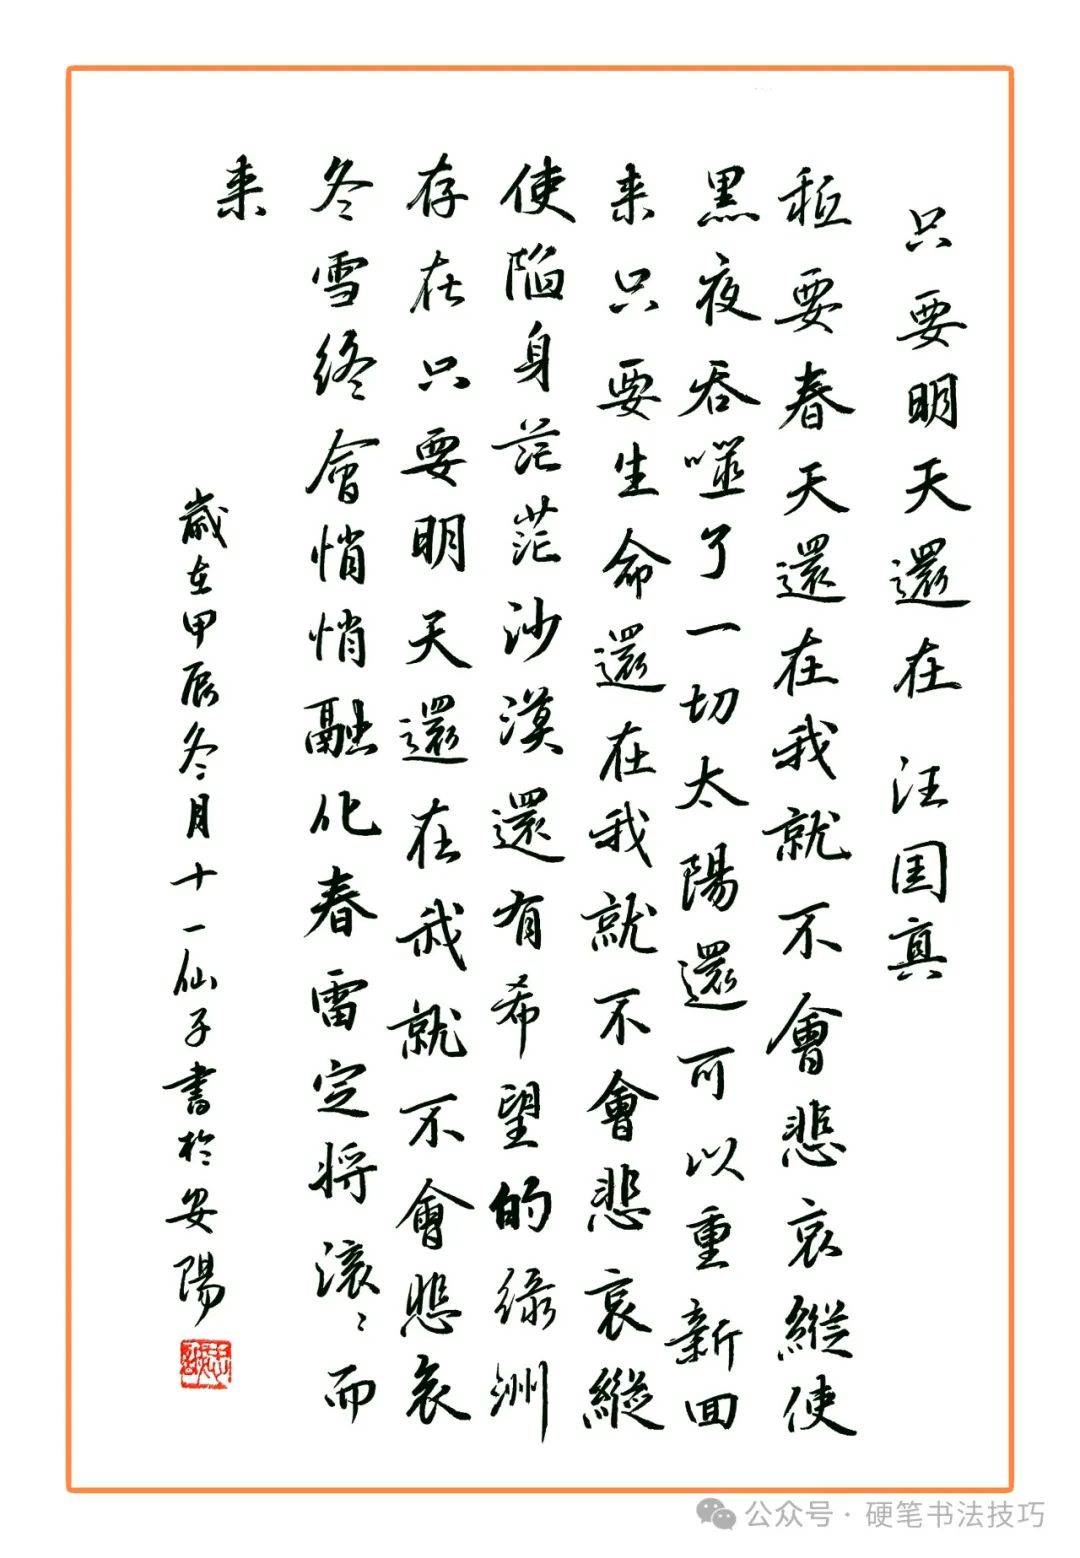 只要明天還在 汪囯真
秖要春天還在我就不會悲哀縱使
黑夜吞噬了一切太陽還可以重新回
来只要生命還在我就不會悲哀縱
使陷身茫茫沙漠還有希望的綠洲
存在只要明天還在我就不會悲哀
冬雪終會悄悄融化春雷定将滾〻而
来
歲在甲辰冬月十一仙子書於安陽
公众号·硬笔书法技巧